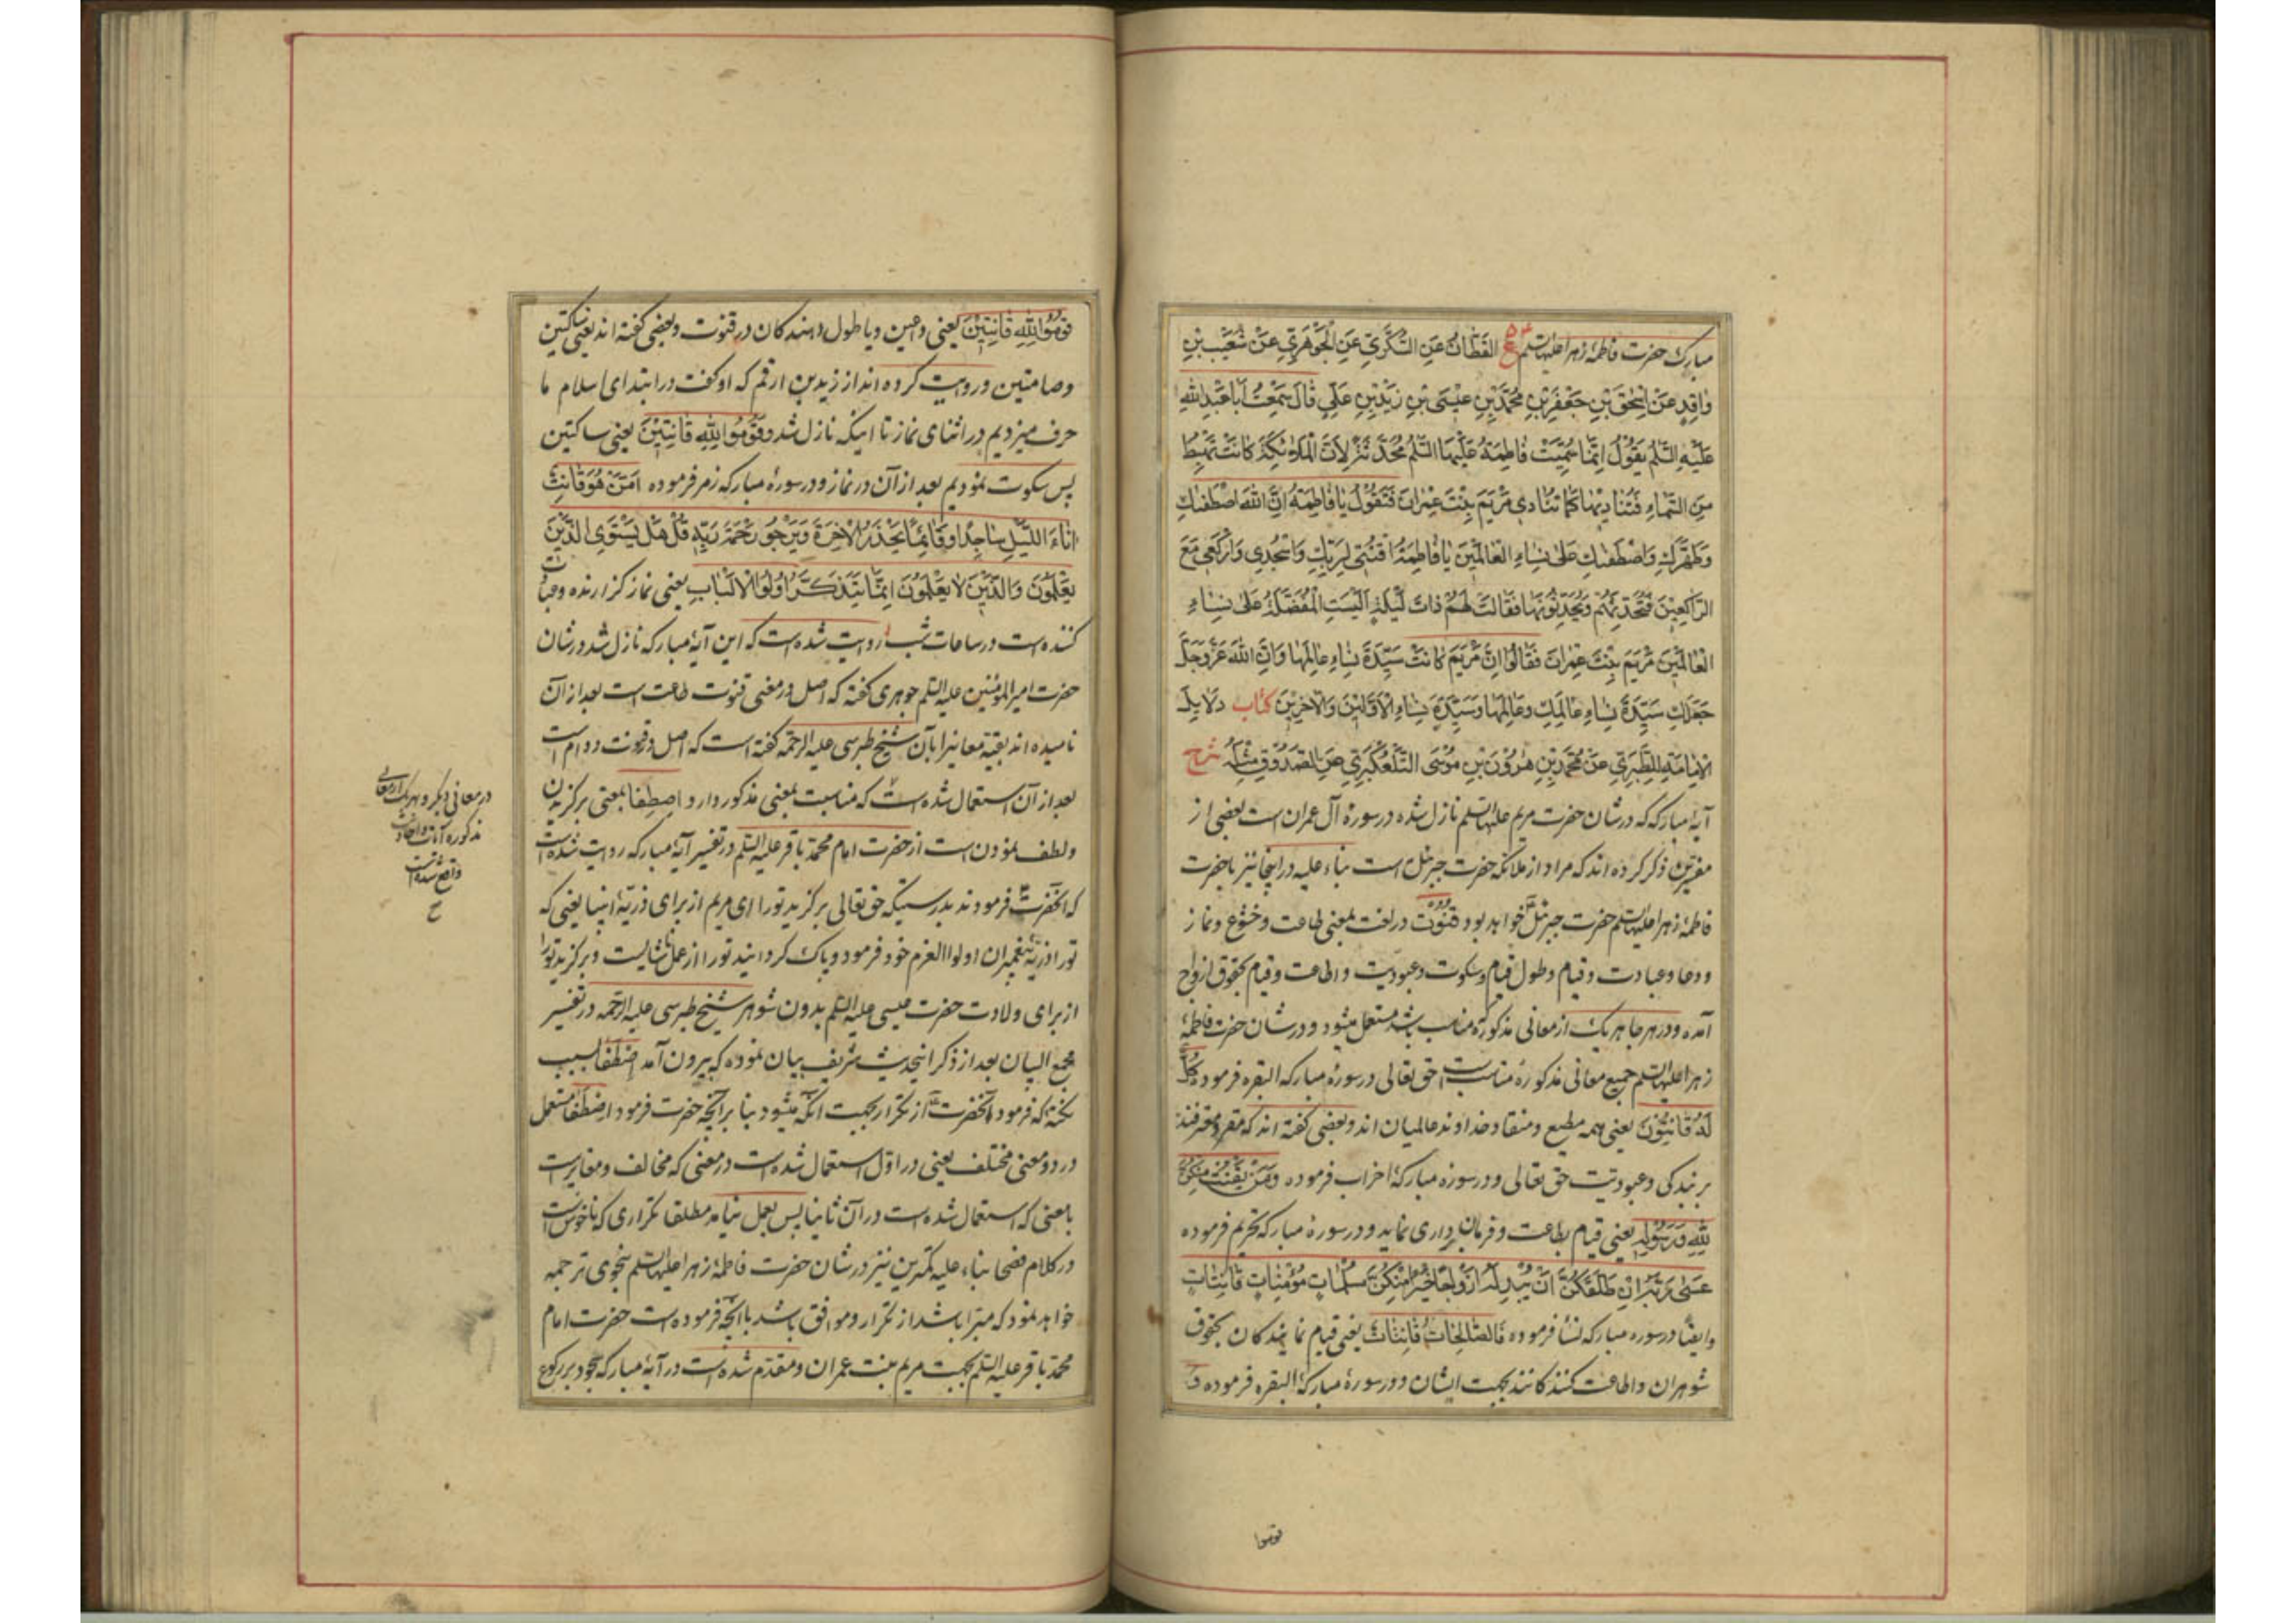 مبارک حضرت فاطمهٔ زهرا علیها السلم ع القَطّانُ عَنِ السُّكَّرِيِّ عَنِ الْجَوْهَرِيِّ عَنْ شُعَيْبِ بْنِ
وٰاقِدٍ عَنْ اِسْحٰقَ بْنِ جَعْفَرِ بْنِ مُحَمَّدِ بْنِ عيسَى بْنِ زَيْدِ بْنِ عَلِيٍّ قٰالَ سَمِعْتُ اَبٰا عَبْدِ اللهِ
عَلَيْهِ السَّلٰمُ يَقُولُ اِنَّمٰا سُمِّيَتْ فٰاطِمَةُ عَلَيْهَا السَّلٰمُ مُحَدَّثَةً لِاَنَّ الْمَلٰائِكَةَ كٰانَتْ تَهْبِطُ
مِنَ السَّمٰاءِ فَتُنٰاديهٰا كَمٰا تُنٰادي مَرْيَمَ بِنْتَ عِمْرٰانَ فَتَقُولُ يٰا فٰاطِمَةُ اِنَّ اللهَ اصْطَفٰيكِ
وَطَهَّرَكِ وَاصْطَفٰيكِ عَلىٰ نِسٰاءِ الْعٰالَمينَ يٰا فٰاطِمَةُ اقْنُتي لِرَبِّكِ وَاسْجُدي وَارْكَعي مَعَ
الرّٰاكِعينَ فَتُحَدِّثُهُمْ وَيُحَدِّثُونَهٰا فَقٰالَتْ لَهُمْ ذٰاتَ لَيْلَةٍ اَلَيْسَتِ الْمُفَضَّلَةُ عَلىٰ نِسٰاءِ
الْعٰالَمينَ مَرْيَمَ بِنْتَ عِمْرٰانَ فَقٰالُوا اِنَّ مَرْيَمَ كٰانَتْ سَيِّدَةَ نِسٰاءِ عٰالَمِهٰا وَاِنَّ اللهَ عَزَّوَجَلَّ
جَعَلَكِ سَيِّدَةَ نِسٰاءِ عٰالَمِكِ وَعٰالَمِهٰا وَسَيِّدَةَ نِسٰاءِ الْاَوَّلينَ وَالْاٰخِرينَ كتاب دَلٰايِلِ
الْاِمٰامَةِ لِلطَّبَرِيِّ عَنْ مُحَمَّدِ بْنِ هٰرُونَ بْنِ مُوسَى التَّلَّعُكْبَرِيِّ عَنِ الصَّدُوقِ مِثْلَهُ شرح
آیهٔ مبارکه که در شان حضرت مریم علیها السلم نازل شده در سورهٔ آل عمران است بعضی از
مفسرین ذکر کرده اند که مراد از ملائکه حضرت جبرئیل است بناء علیه در اینجا نیز با حضرت
فاطمهٔ زهرا علیها السلم حضرت جبرئیل خواهد بود قنوت در لغت بمعنی طاعت و خشوع و نماز
و دعا و عبادت و قیام و طول قیام و سکوت و عبودیت و اطاعت و قیام بحقوق ازواج
آمده و در هر جا هر یک از معانی مذکوره که مناسب باشد مستعمل میشود و در شان حضرت فاطمهٔ
زهرا علیها السلم جمیع معانی مذکوره مناسبست حق تعالی در سورهٔ مبارکه البقره فرموده كُلٌّ
لَهُ قٰانِتُونَ یعنی همه مطیع و منقاد خداوند عالمیان اند و بعضی گفته اند که مقر و معترفند
بر بندگی و عبودیت حق تعالی و در سورهٔ مبارکهٔ احزاب فرموده وَمَنْ يَقْنُتْ مِنْكُنَّ
لِلّٰهِ وَرَسُولِهِ یعنی قیام بطاعت و فرمان برداری نماید و در سورهٔ مبارکه تحریم فرموده
عَسىٰ رَبُّهُ اِنْ طَلَّقَكُنَّ اَنْ يُبْدِلَهُ اَزْوٰاجًا خَيْرًا مِنْكُنَّ مُسْلِمٰاتٍ مُؤْمِنٰاتٍ قٰانِتٰاتٍ
و ایضًا در سوره مبارکه نسأ فرموده فَالصّٰالِحٰاتُ قٰانِتٰاتٌ یعنی قیام نمایندگان بحقوق
شوهران و اطاعت کنندگانند بجهت ایشان و در سورهٔ مبارکهٔ البقره فرموده وَ
قوموا
قُومُوا لِلّٰهِ قٰانِتينَ یعنی داعین و یا طول دهندگان در قنوت و بعضی گفته اند یعنی ساکتین
و صامتین و روایت کرده اند از زید بن ارقم که او گفت در ابتدای اسلام ما
حرف میزدیم در اثنای نماز تا اینکه نازل شد وَقُومُوا لِلّٰهِ قٰانِتينَ یعنی ساکتین
پس سکوت نمودیم بعد از آن در نماز و در سورهٔ مبارکه زمر فرموده اَمَّنْ هُوَ قٰانِتٌ
اٰنٰاءَ اللَّيْلِ سٰاجِدًا وَقٰائِمًا يَحْذَرُ الْاٰخِرَةَ وَيَرْجُو رَحْمَةَ رَبِّهِ قُلْ هَلْ يَسْتَوِي الَّذينَ
يَعْلَمُونَ وَالَّذينَ لٰا يَعْلَمُونَ اِنَّمٰا يَتَذَكَّرُ اُولُوا الْاَلْبٰابِ یعنی نماز گزارنده و عبادت
کننده است در ساعات شب روایت شده است که این آیهٔ مبارکه نازل شد در شان
حضرت امیر المؤمنین علیه السلم جوهری گفته که اصل در معنی قنوت طاعت است بعد از آن
نامیده اند بقیهٔ معانیرا بآن شیخ طبرسی علیه الرحمه گفته است که اصل در قنوت دوام است
بعد از آن استعمال شده است که مناسبت بمعنی مذکور دارد و اصطفا بمعنی برگزیدن
و لطف نمودن است از حضرت امام محمد باقر علیه السلم در تفسیر آیهٔ مبارکه روایت شده است
که آنحضرت فرمودند بدرستیکه حق تعالی برگزید تورا ای مریم از برای ذریهٔ انبیا یعنی که
تورا ذریهٔ پیغمبران اولوا العزم خود فرمود و پاک گردانید تورا از عمل ناشایست و برگزید تورا
از برای ولادت حضرت عیسی علیه السلم بدون شوهر شیخ طبرسی علیه الرحمه در تفسیر
مجمع البیان بعد از ذکر اینحدیث شریف بیان نموده که بیرون آمد اصطفا بسبب
نکتهٔ که فرمود آنحضرت از تکرار بجهت آنکه میشود بنا بر آنچه حضرت فرمود اصطفا مستعمل
در دو معنی مختلف یعنی در اول استعمال شده است در معنی که مخالف و مغایرست
با معنی که استعمال شده است در آن ثانیا پس بعمل نیامد مطلقا تکراری که ناخوش است
در کلام فصحا بناء علیه کمترین نیز در شان حضرت فاطمهٔ زهرا علیها السلم بنحوی ترجمه
خواهد نمود که مبرا باشد از تکرار و موافق باشد با آنچه فرموده است حضرت امام
محمد باقر علیه السلم بجهت مریم بنت عمران و مقدم شده است در آیهٔ مبارکه سجود بر رکوع
در معانی دیگر و هر یک از معانی
مذکوره آیات و احادیث
واقع شده است
ح